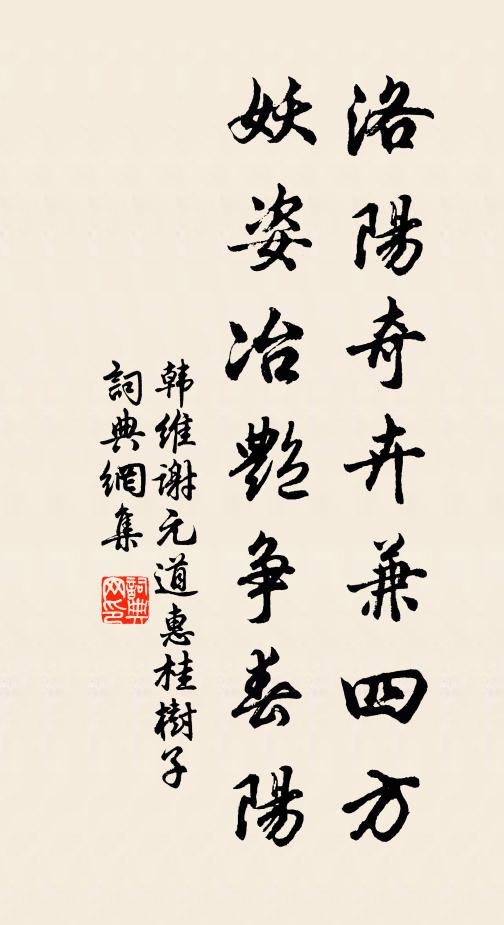 洛陽奇卉兼四方
妖姿冶艷争春陽
韩維謝元道惠桂樹子
詞典網集
詞典网印